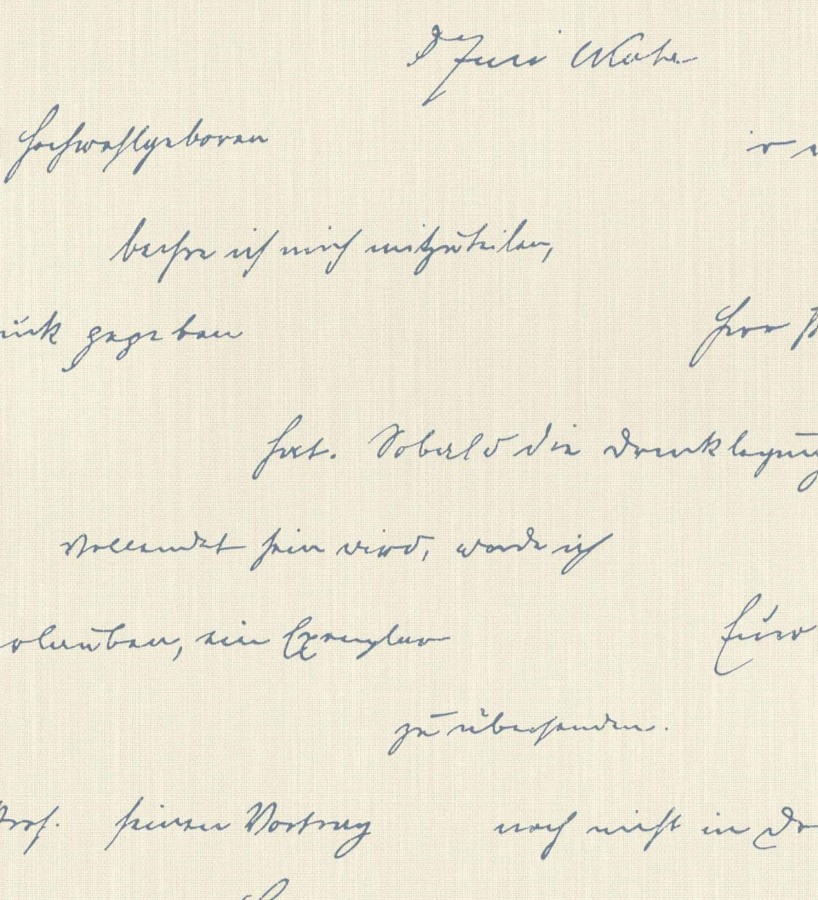 Hochwohlgeboren
beehre ich mich mitzuteilen,
ück gegeben Herr
hat. Sobald die Drucklegung
vollendet sein wird, werde ich
rlauben, ein Exemplar Euer
zu übersenden.
Prof. seinen Vortrag noch nicht in Dr